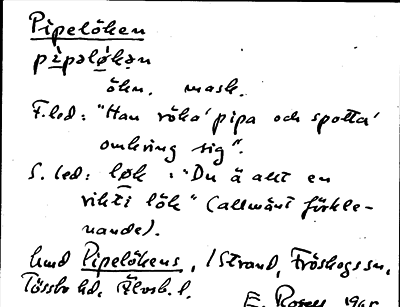 Pipelöken
pìpəlø̀kən
ökn. mask.
F.led: "Han röka' pipa och spotta'
omkring sig".
S. led: løk : "Du ä allt en
rikti lök" (allmänt förkle-
nande).
hmd Pipelökens, i Strand, Fröskogs sn,
Tössbo hd, Älvsb. l.
E. Rosell 1965